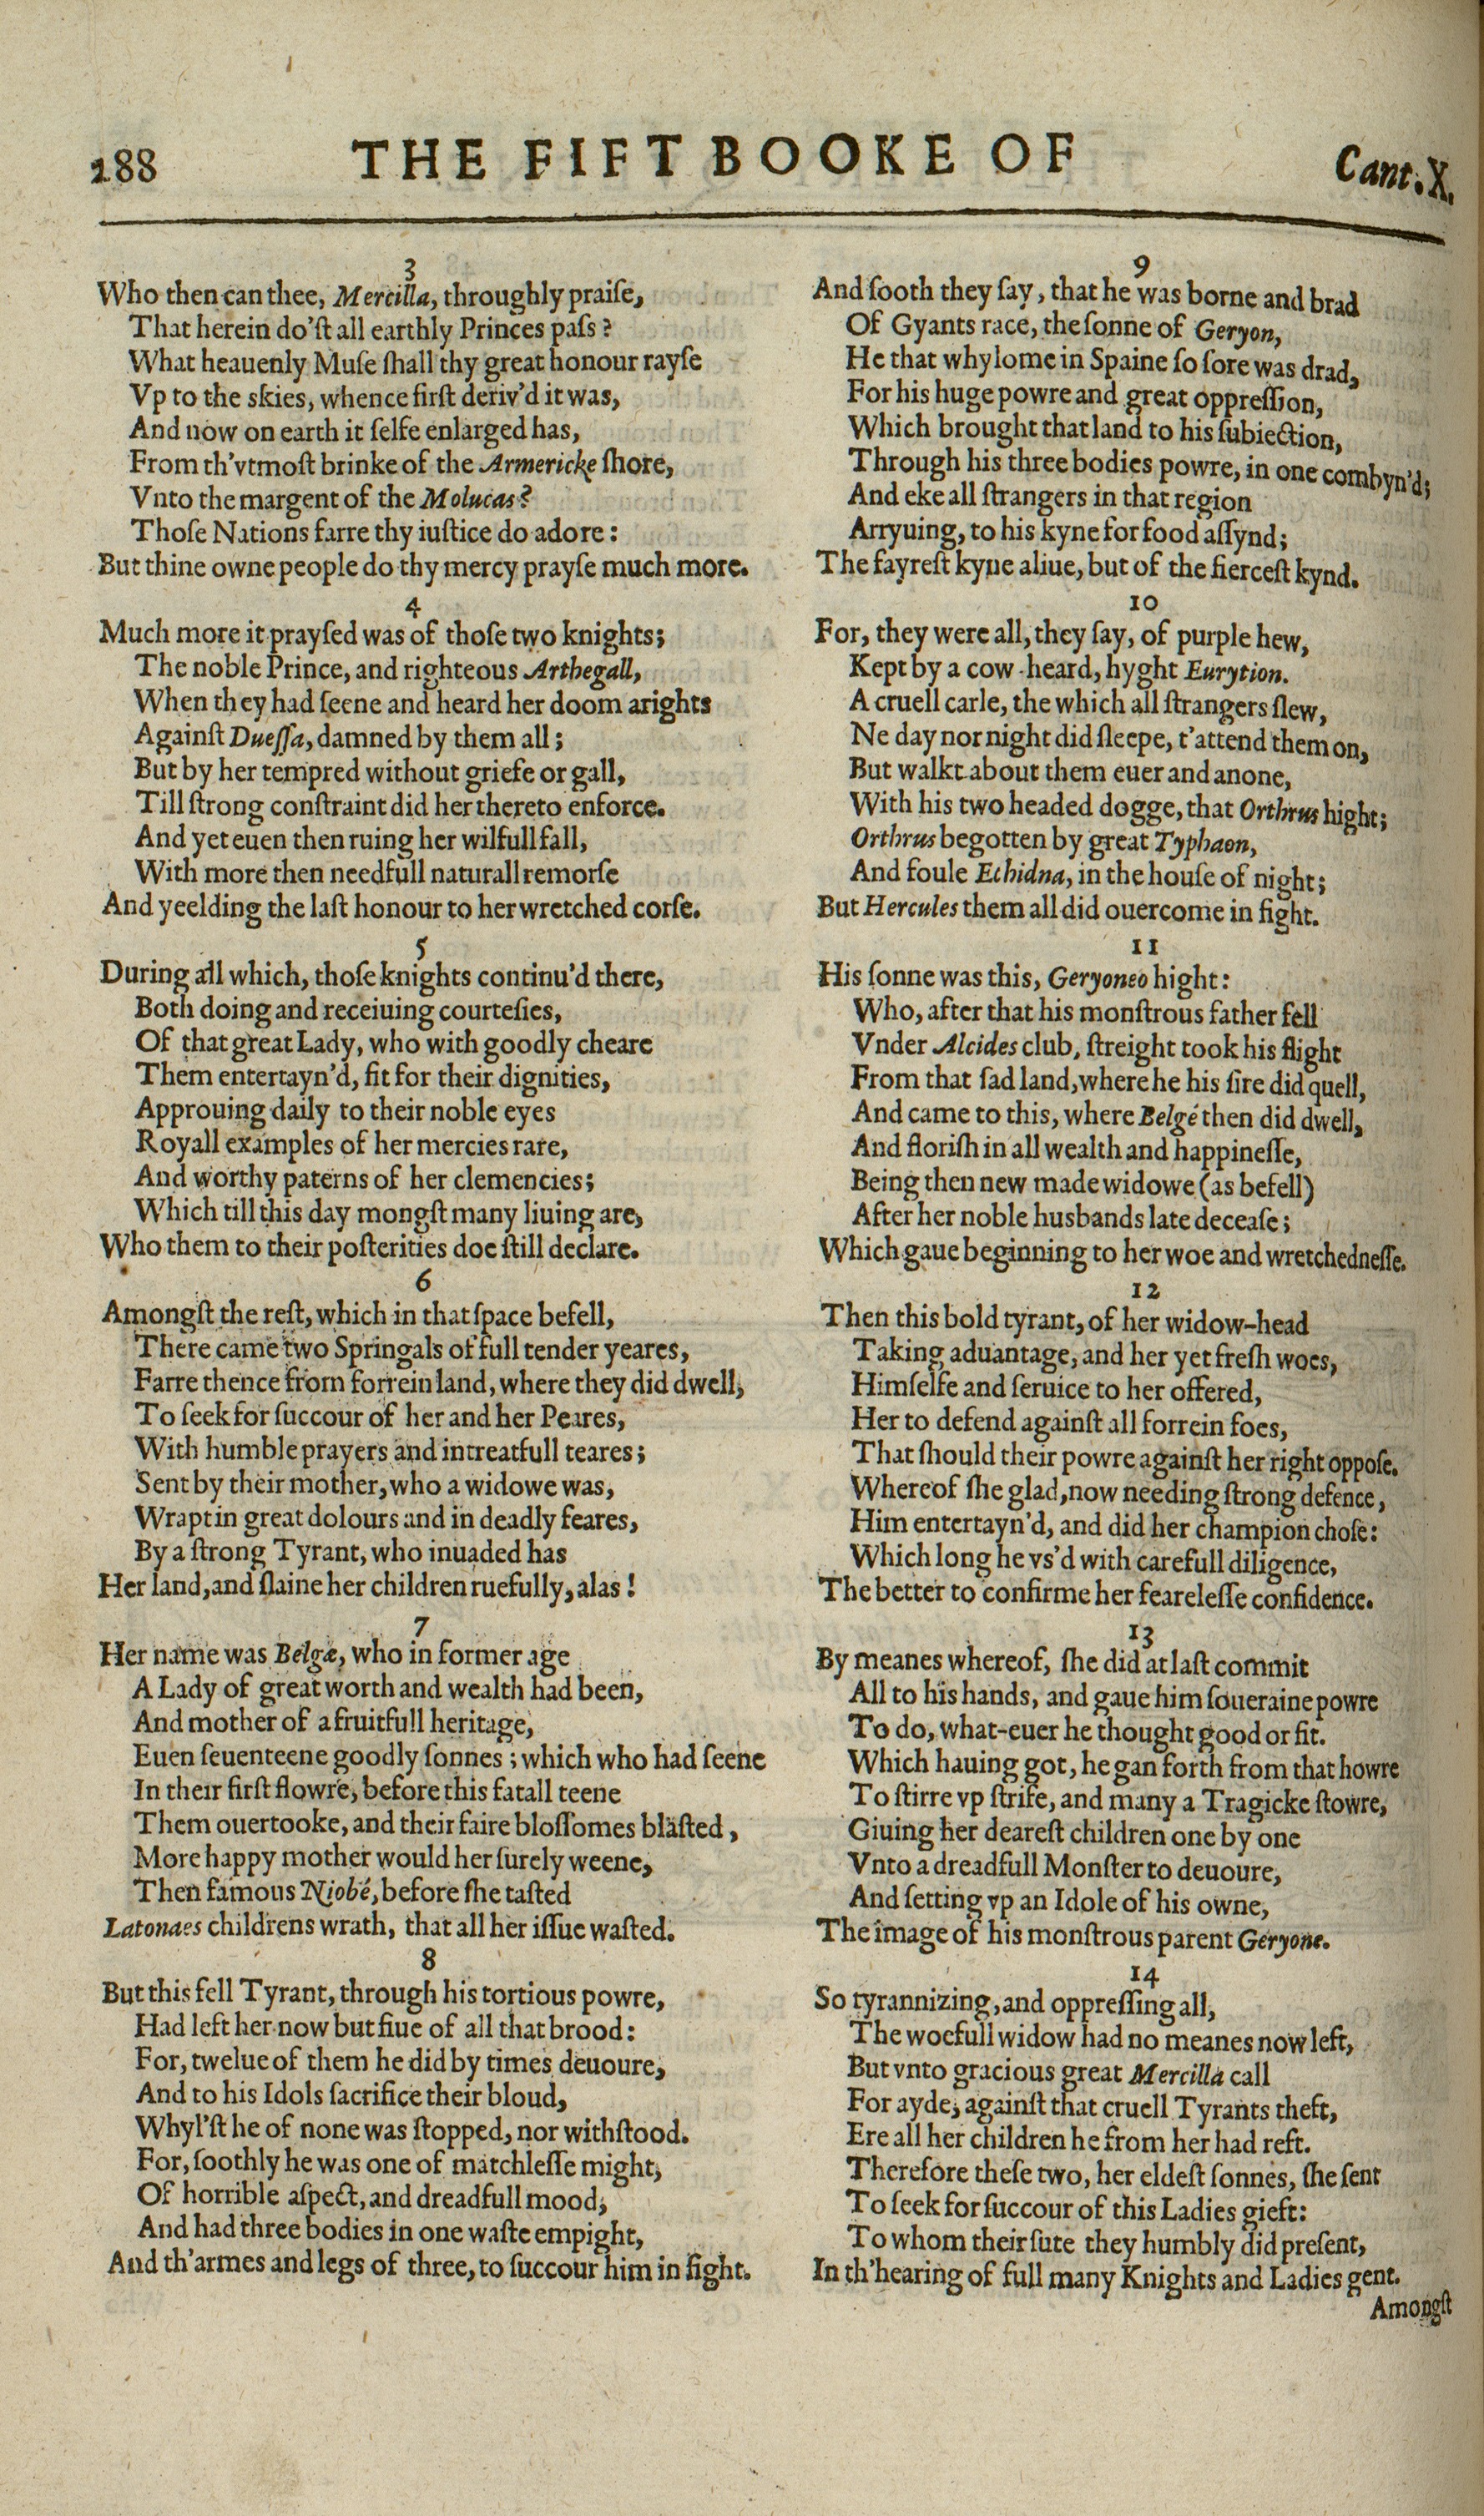 288 THE FIFT BOOKE OF Cant. X.
3
Who then can thee, Mercilla, throughly praiſe,
That herein do'ſt all earthly Princes paſs?
What heauenly Muſe ſhall thy great honour rayſe
Vp to the skies, whence firſt deriv'd it was,
And now on earth it ſelfe enlarged has,
From th'vtmoſt brinke of the Armericke ſhore,
Vnto the margent of the Molucas?
Thoſe Nations farre thy iuſtice do adore:
But thine owne people do thy mercy prayſe much more.
4
Much more it prayſed was of thoſe two knights;
The noble Prince, and righteous Arthegall,
When they had ſeene and heard her doom arights
Againſt Dueſſa, damned by them all;
But by her tempred without griefe or gall,
Till ſtrong conſtraint did her thereto enforce.
And yet euen then ruing her wilfull fall,
With more then needfull naturall remorſe
And yeelding the laſt honour to her wretched corſe.
5
During all which, thoſe knights continu'd there,
Both doing and receiuing courteſies,
Of that great Lady, who with goodly cheare
Them entertayn'd, fit for their dignities,
Approuing daily to their noble eyes
Royall examples of her mercies rare,
And worthy paterns of her clemencies;
Which till this day mongſt many liuing are,
Who them to their poſterities doe ſtill declare.
6
Amongſt the reſt, which in that ſpace befell,
There came two Springals of full tender yeares,
Farre thence from forrein land, where they did dwell,
To ſeek for ſuccour of her and her Peares,
With humble prayers and intreatfull teares;
Sent by their mother, who a widowe was,
Wrapt in great dolours and in deadly feares,
By a ſtrong Tyrant, who inuaded has
Her land, and ſlaine her children ruefully, alas!
7
Her name was Belgæ, who in former age
A Lady of great worth and wealth had been,
And mother of a fruitfull heritage,
Euen ſeuenteene goodly ſonnes; which who had ſeene
In their firſt flowre, before this fatall teene
Them ouertooke, and their faire bloſſomes blaſted,
More happy mother would her ſurely weene,
Then famous Niobé, before ſhe taſted
Latonaes childrens wrath, that all her iſſue waſted.
8
But this fell Tyrant, through his tortious powre,
Had left her now but fiue of all that brood:
For, twelue of them he did by times deuoure,
And to his Idols ſacrifice their bloud,
Whyl'ſt he of none was ſtopped, nor withſtood.
For, ſoothly he was one of matchleſſe might,
Of horrible aſpect, and dreadfull mood,
And had three bodies in one waſte empight,
And th'armes and legs of three, to ſuccour him in fight.
9
And ſooth they ſay, that he was borne and brad
Of Gyants race, the ſonne of Geryon,
He that whylome in Spaine ſo ſore was drad,
For his huge powre and great oppreſſion,
Which brought that land to his ſubiection,
Through his three bodies powre, in one combyn'd;
And eke all ſtrangers in that region
Arryuing, to his kyne for food aſſynd;
The fayreſt kyne aliue, but of the fierceſt kynd.
10
For, they were all, they ſay, of purple hew,
Kept by a cow-heard, hyght Eurytion.
A cruell carle, the which all ſtrangers ſlew,
Ne day nor night did ſleepe, t'attend them on,
But walkt about them euer and anone,
With his two headed dogge, that Orthrus hight;
Orthrus begotten by great Typhaon,
And foule Echidna, in the houſe of night;
But Hercules them all did ouercome in fight.
11
His ſonne was this, Geryoneo hight:
Who, after that his monſtrous father fell
Vnder Alcides club, ſtreight took his flight
From that ſad land, where he his ſire did quell,
And came to this, where Belgé then did dwell,
And floriſh in all wealth and happineſſe,
Being then new made widowe (as befell)
After her noble husbands late deceaſe;
Which gaue beginning to her woe and wretchedneſſe.
12
Then this bold tyrant, of her widow-head
Taking aduantage, and her yet freſh woes,
Himſelfe and ſeruice to her offered,
Her to defend againſt all forrein foes,
That ſhould their powre againſt her right oppoſe.
Whereof ſhe glad, now needing ſtrong defence,
Him entertayn'd, and did her champion choſe:
Which long he vs'd with carefull diligence,
The better to confirme her feareleſſe confidence.
13
By meanes whereof, ſhe did at laſt commit
All to his hands, and gaue him ſoueraine powre
To do, what-euer he thought good or fit.
Which hauing got, he gan forth from that howre
To ſtirre vp ſtrife, and many a Tragicke ſtowre,
Giuing her deareſt children one by one
Vnto a dreadfull Monſter to deuoure,
And ſetting vp an Idole of his owne,
The image of his monſtrous parent Geryone.
14
So tyrannizing, and oppreſſing all,
The woefull widow had no meanes now left,
But vnto gracious great Mercilla call
For ayde, againſt that cruell Tyrants theft,
Ere all her children he from her had reft.
Therefore theſe two, her eldeſt ſonnes, ſhe ſent
To ſeek for ſuccour of this Ladies gieft:
To whom their ſute they humbly did preſent,
In th'hearing of full many Knights and Ladies gent.
Amongſt